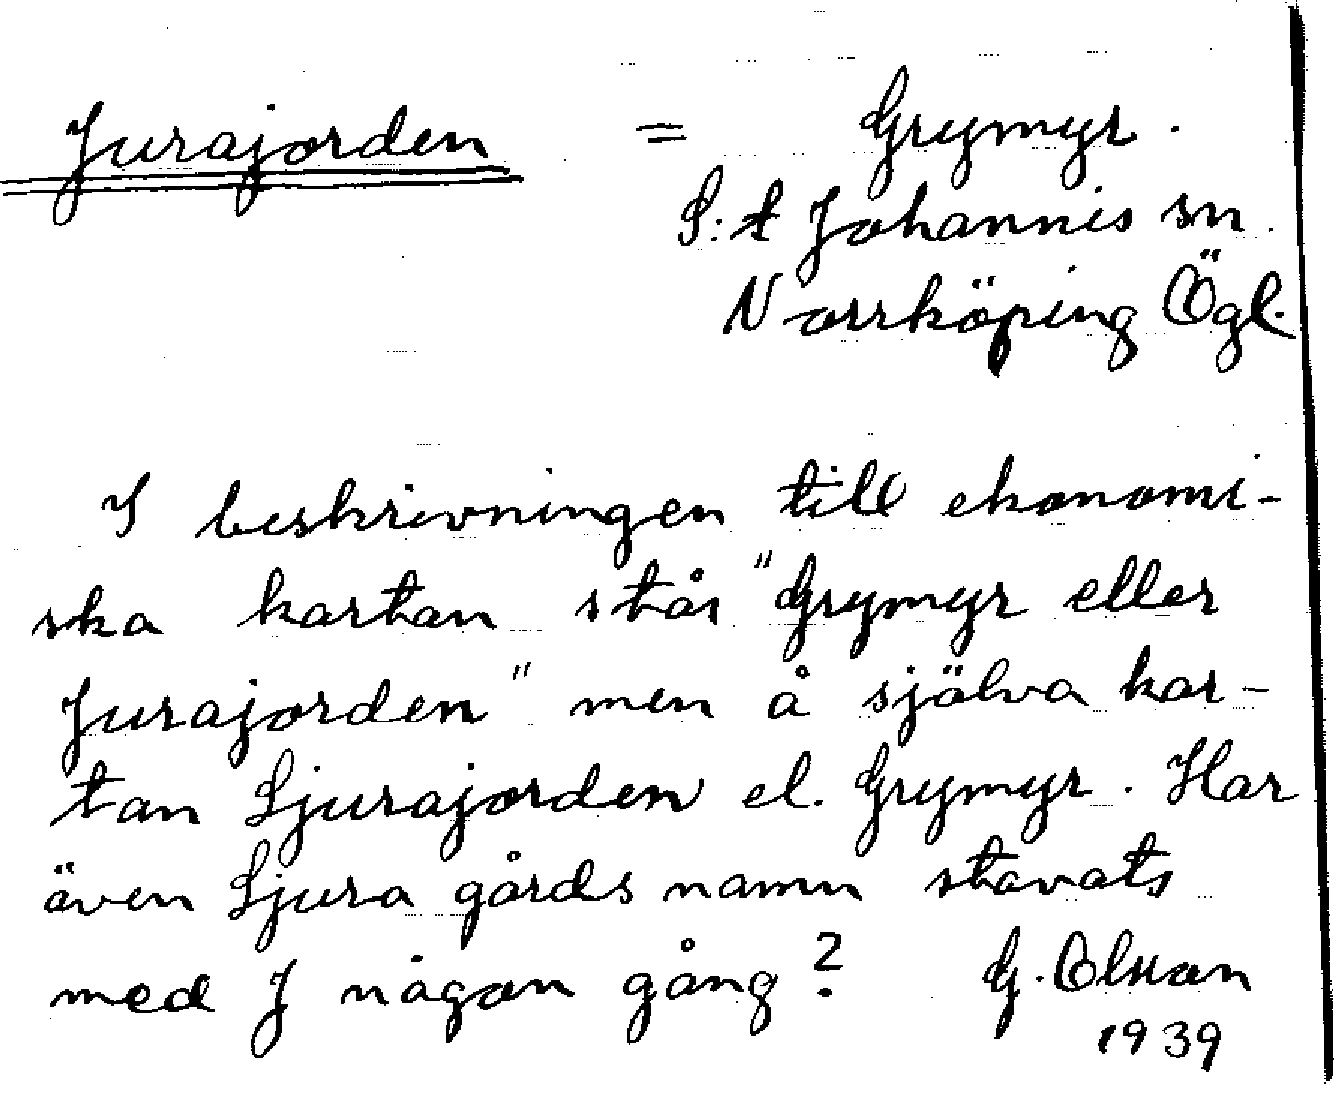 Jurajorden = Grymyr.
S:t Johannis sn.
Norrköping Ögl.
I beskrivningen till ekonomi-
ska kartan står "Grymyr eller
Jurajorden" men å själva kar-
tan Ljurajorden el. Grymyr. Har
även Ljura gårds namn stavats
med J någon gång? G.
1939